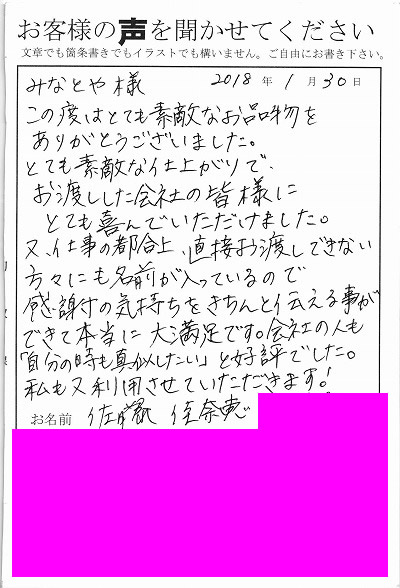 お客様の声を聞かせてください
文章でも箇条書きでもイラストでも構いません。ご自由にお書き下さい。
みなとや様 2018年1月30日
この度はとても素敵なお品物を
ありがとうございました。
とても素敵な仕上がりで、
お渡しした会社の皆様に
とても喜んでいただけました。
又、仕事の都合上、直接お渡しできない
方々にも名前が入っているので
感謝の気持ちをきちんと伝える事が
できて本当に大満足です。会社の人も
「自分の時も真似したい」と好評でした。
私も又利用させていただきます!
お名前 佐藤 佳奈恵